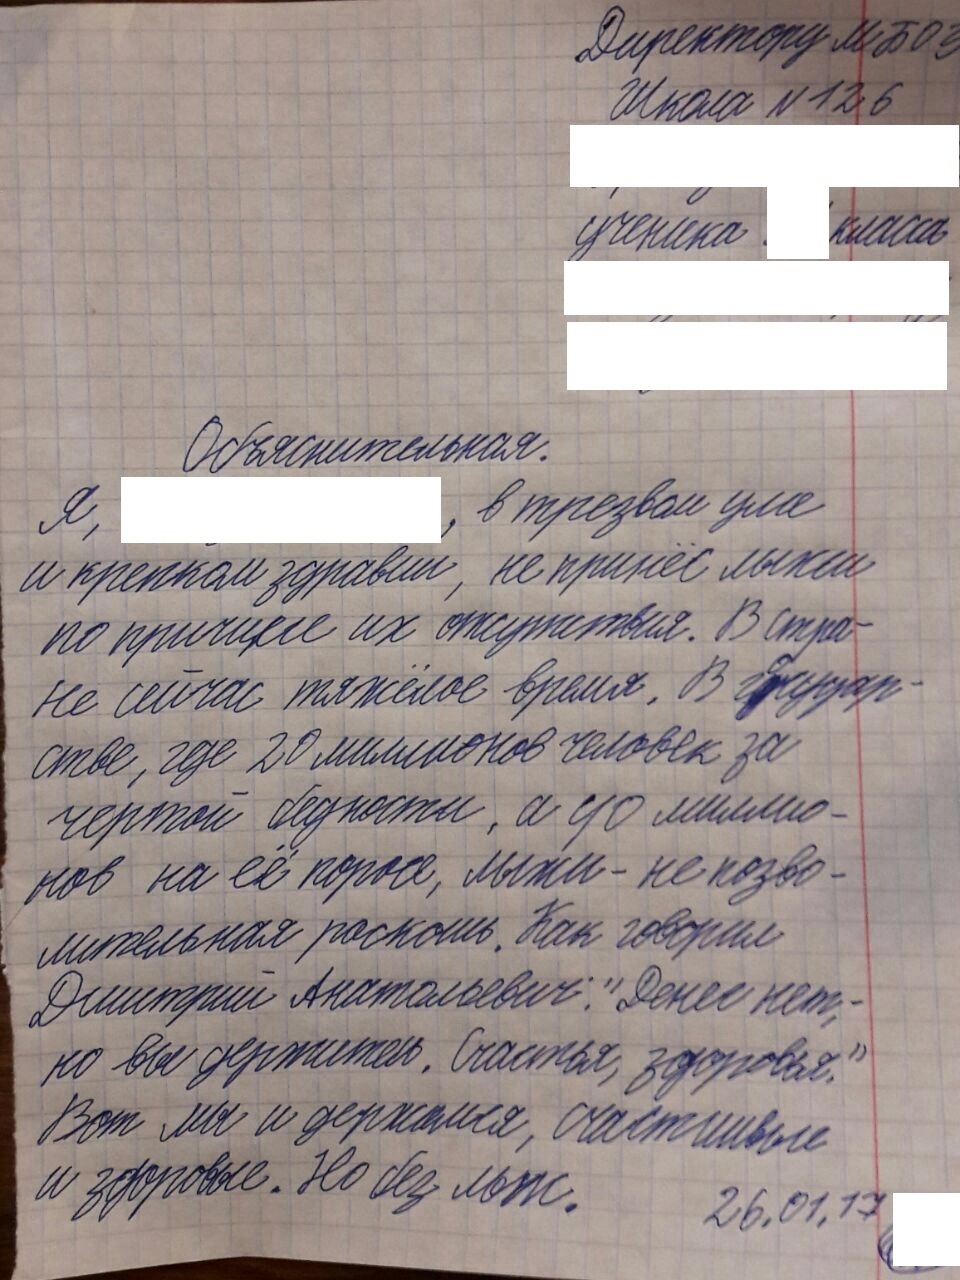 Директору МБОУ
Школа N 126
ученика класса
Объяснительная.
Я, , в трезвом уме
и крепком здравии, не принёс лыжи
по причине их отсутствия. В стра-
не сейчас тяжёлое время. В государ-
стве, где 20 миллионов человек за
чертой бедности, а 40 миллио-
нов на её пороге, лыжи - не позво-
лительная роскошь. Как говорил
Дмитрий Анатольевич: "Денег нет,-
но вы держитесь. Счастья, здоровья."
Вот мы и держимся, счастливые
и здоровые. Но без лыж.
26.01.17